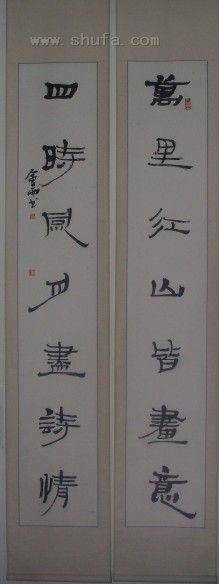 www.shufa.com
萬里江山皆畫意
四時風月盡詩情